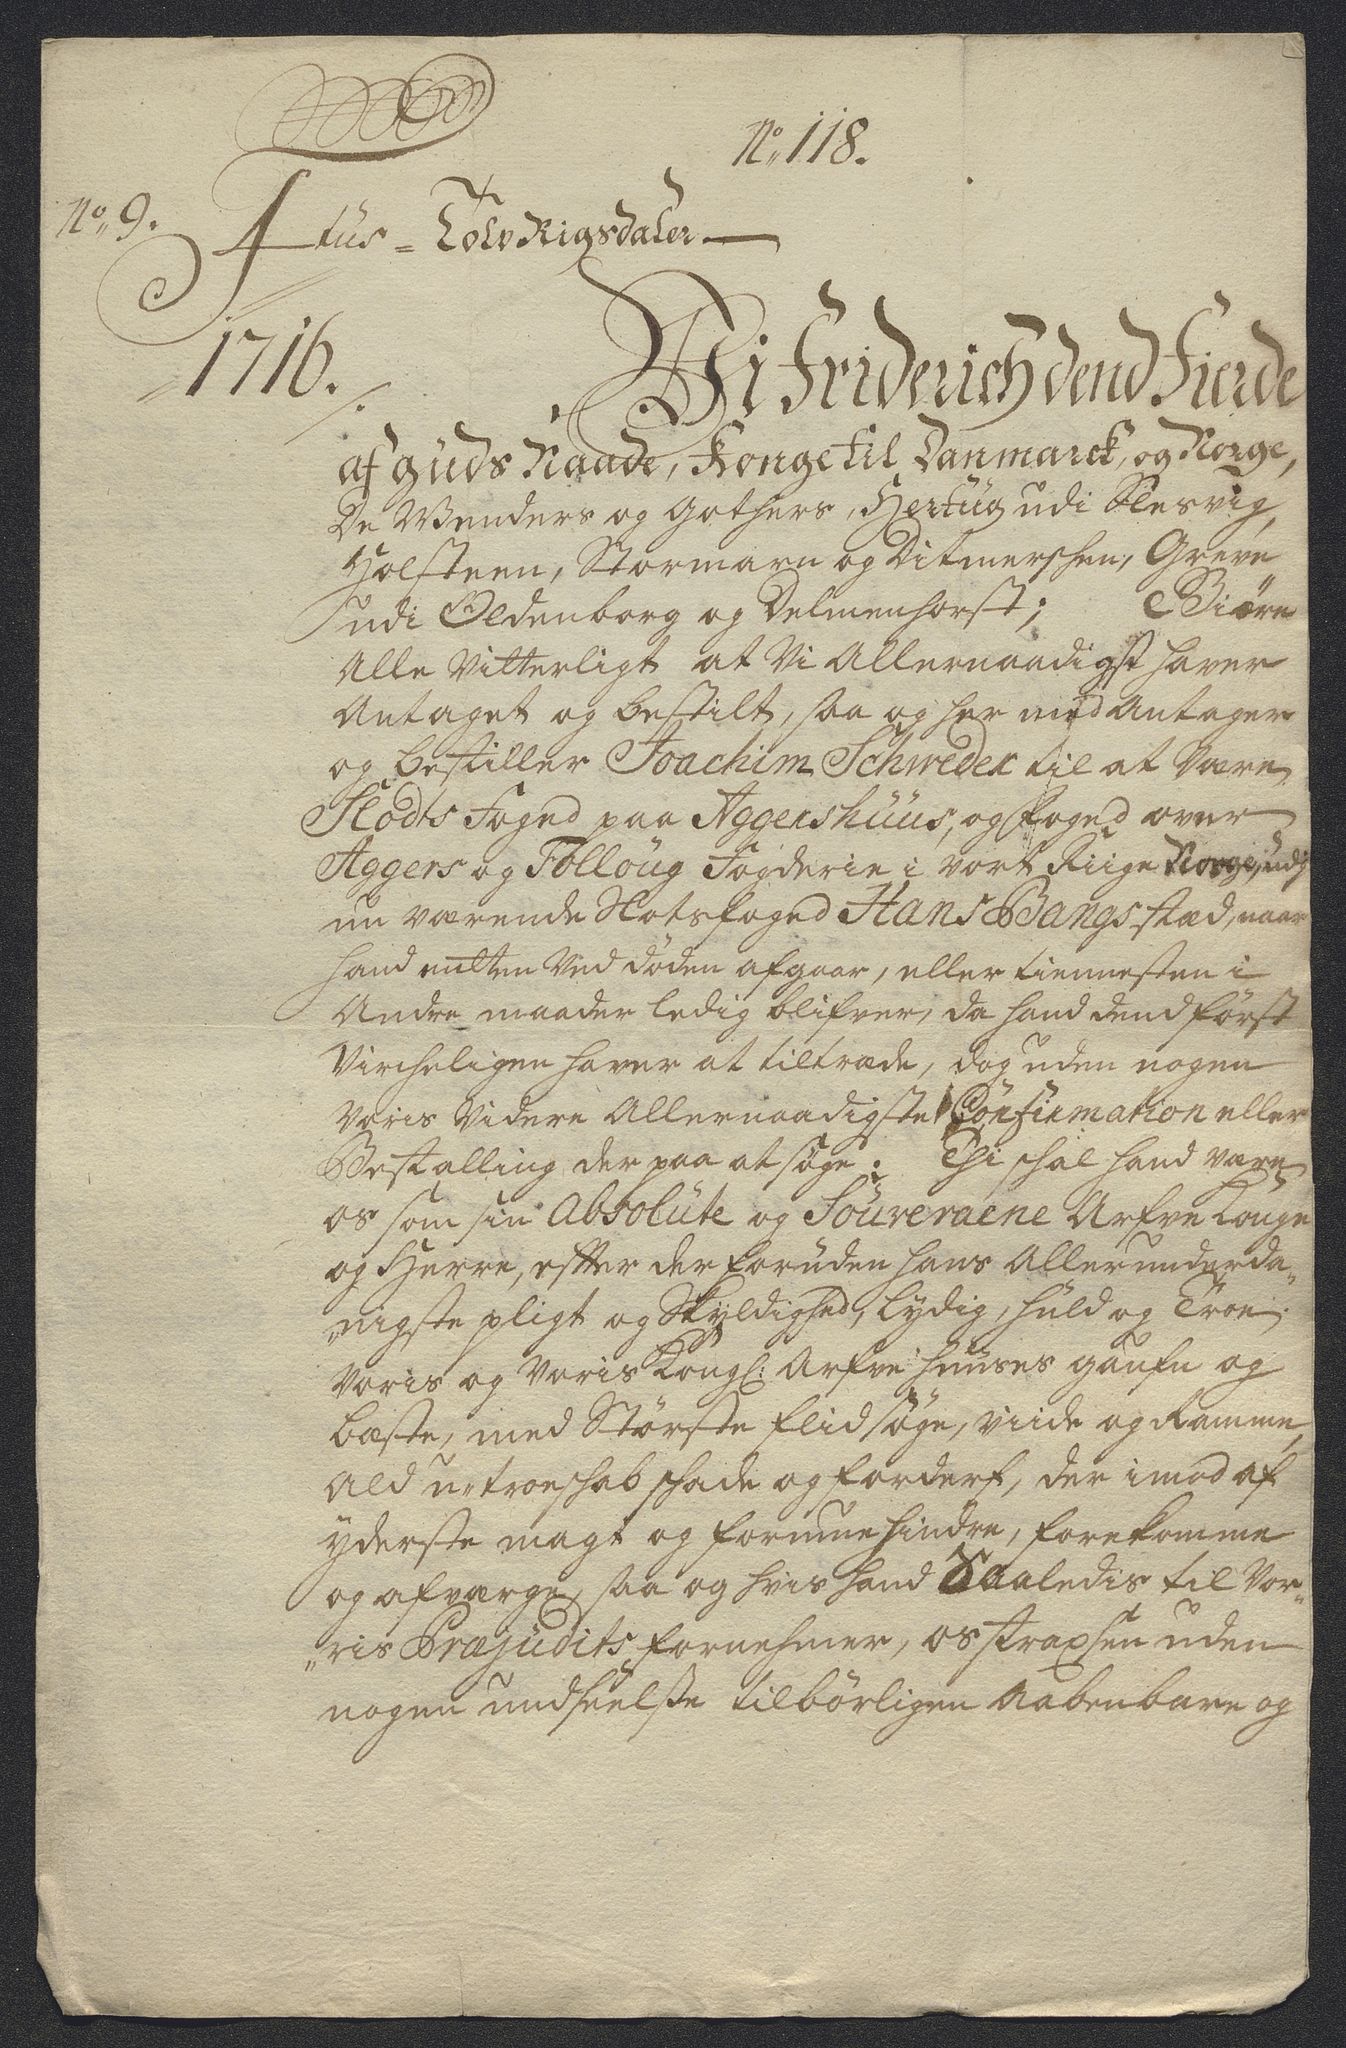 No. 118.
No. 9.
tüs = Tolv Rigsdaler
1716.
Vi Friderich dend Fierde
af Guds Naade, Konge til Danmarck, og Norge,
De Wenders og Gothers, Hertüg udi Slesvig,
Holsteen, Stormarn og Ditmerschen, Greve
udi Oldenborg og Delmenhorst; Giöre
Alle Vitterligt at Vi Allernaadigst haver
Antaget og bestilt, saa og her med Antager
og bestiller Joachim Schweder til at Være
Slodts Foged paa Aggershüüs, og Foged over
Aggers og Follöug Fogderie i vort Riige Norge, udj
nu værende Slotsfoged Hans Bangs stæd, naar
hand enten Ved döden afgaar, eller tiennesten i
Andre maader ledig blifver, da hand dend först
Vircheligen haver at tiltræde, dog uden nogen
Voris Videre Allernaadigste Confirmation eller
Bestalling der paa at söge: Thi schal hand være
os som sin Absolüte og Souveraene Arfve Konge
og Herre, efter der foruden hans Allerunderda„
„nigste pligt og Skyldighed, Lydig, hüld og Troe,
Voris og Voris Kongl: Arfve huuses gaufn og
bæste, med Störste flid söge, viide og Ramme,
Ald u-troeschab schade og forderf, der imod af
yderste magt og formue hindre, forekomme
og afværge, saa og hvis hand Saaledis til Vor„
„ris Præjudits fornehmer, os straxsen uden
nogen undseelse tilbörligen Aabenbare og